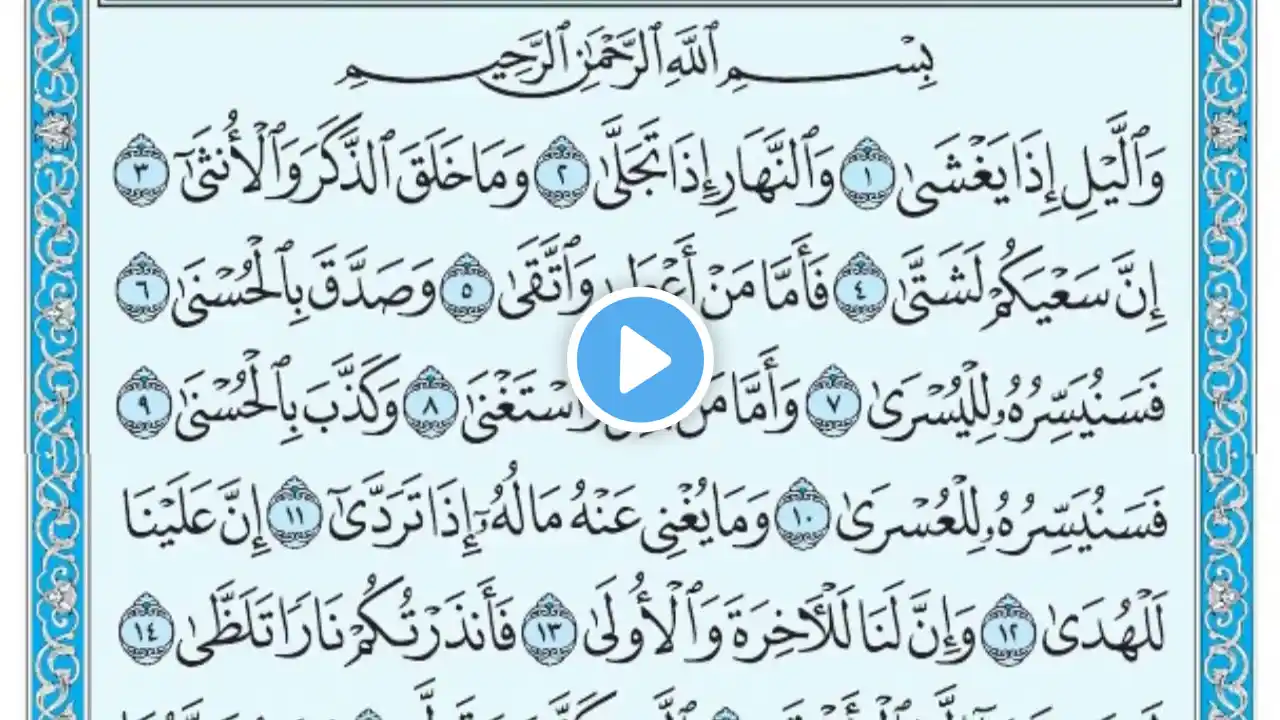 بِسْمِ ٱللَّهِ ٱلرَّحْمَٰنِ ٱلرَّحِيمِ
وَٱلَّيْلِ إِذَا يَغْشَىٰ ١ وَٱلنَّهَارِ إِذَا تَجَلَّىٰ ٢ وَمَا خَلَقَ ٱلذَّكَرَ وَٱلْأُنثَىٰٓ ٣
إِنَّ سَعْيَكُمْ لَشَتَّىٰ ٤ فَأَمَّا مَنْ وَٱتَّقَىٰ ٥ وَصَدَّقَ بِٱلْحُسْنَىٰ ٦
فَسَنُيَسِّرُهُۥ لِلْيُسْرَىٰ ٧ وَأَمَّا ٱسْتَغْنَىٰ ٨ وَكَذَّبَ بِٱلْحُسْنَىٰ ٩
فَسَنُيَسِّرُهُۥ لِلْعُسْرَىٰ ١٠ وَمَا يُغْنِى عَنْهُ مَالُهُۥٓ إِذَا تَرَدَّىٰٓ ١١ إِنَّ عَلَيْنَا
لَلْهُدَىٰ ١٢ وَإِنَّ لَنَا لَلْءَاخِرَةَ وَٱلْأُولَىٰ ١٣ فَأَنذَرْتُكُمْ نَارًا تَلَظَّىٰ ١٤